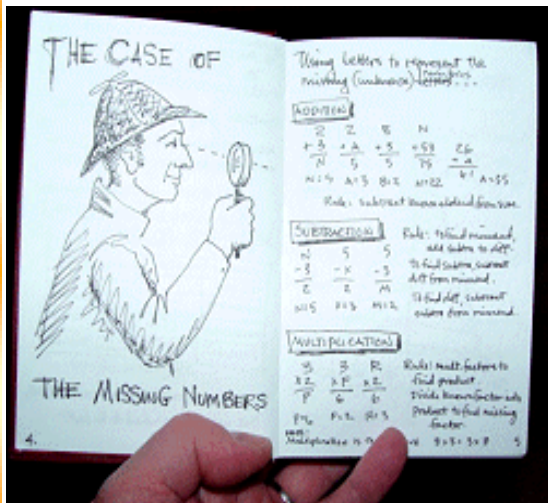 THE CASE OF
THE MISSING NUMBERS
4.
Using letters to represent the
missing (unknown)
ADDITION
2 2 B N
+3 +A +3 +53
N 5 5 75 26
N=5 A=3 B=2 N=22 A=35
Rule: subtract known addend from sum.
SUBTRACTION
N 5 5
-3 -X -3
2 2 M
N=5 X=3 M=2
Rule: to find minuend,
add subtra to diff.
To find subtra, subtract
diff from minuend.
To find diff, subtract
subtra from minuend.
MULTIPLICATION
3 3 R
x2 xF x2
P 6 6
P=6 F=2 R=3
Rule: mult. factors to
find product.
Divide known factor into
product to find missing
factor.
Multiplication is
5